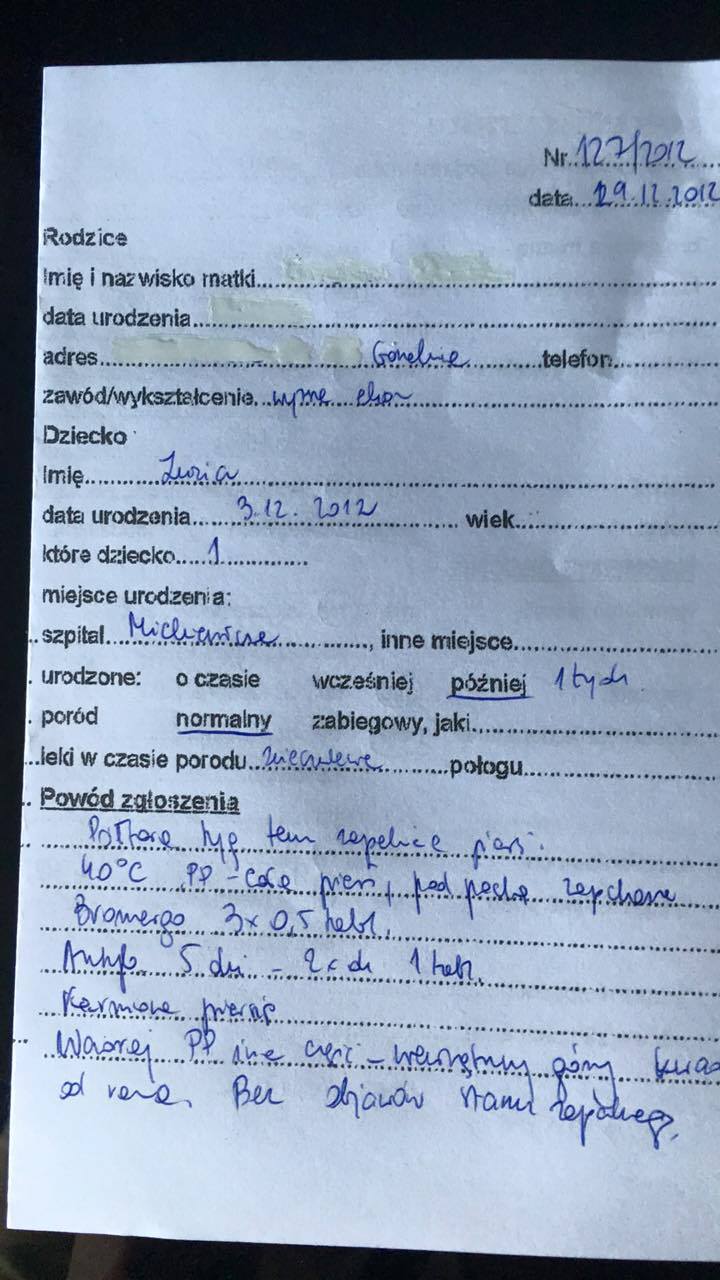 Nr. 127/2012
data... 29.12.2012
Rodzice
Imię i nazwisko matki
data urodzenia
adres telefon
zawód/wykształcenie
Dziecko
Imię
data urodzenia 3.12.2012 wiek
które dziecko 1
miejsce urodzenia:
szpital , inne miejsce
urodzone: o czasie wcześniej później 1 tydz
poród normalny zabiegowy, jaki
leki w czasie porodu połogu
Powód zgłoszenia
tyg temu zapalenie piersi.
40°C PP - cała pierś, pod pachą zapchane
Bromergo 3x0,5 tabl.
5 dni - 2x dz 1 tabl.
Karmione piersią
Wczoraj PP inna część - wewnętrzny górny
od rana. Bez objawów stanu zapalnego.